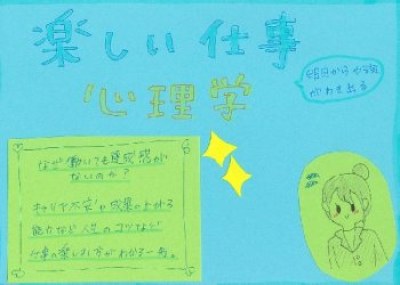 楽しい仕事
心理学
明日からやる気
がわきある
なぜ働いても達成感が
ないのか?
キャリア不安や成果のよれる
能力など人生のコツなど
仕事の楽しみ方がわかる一冊。